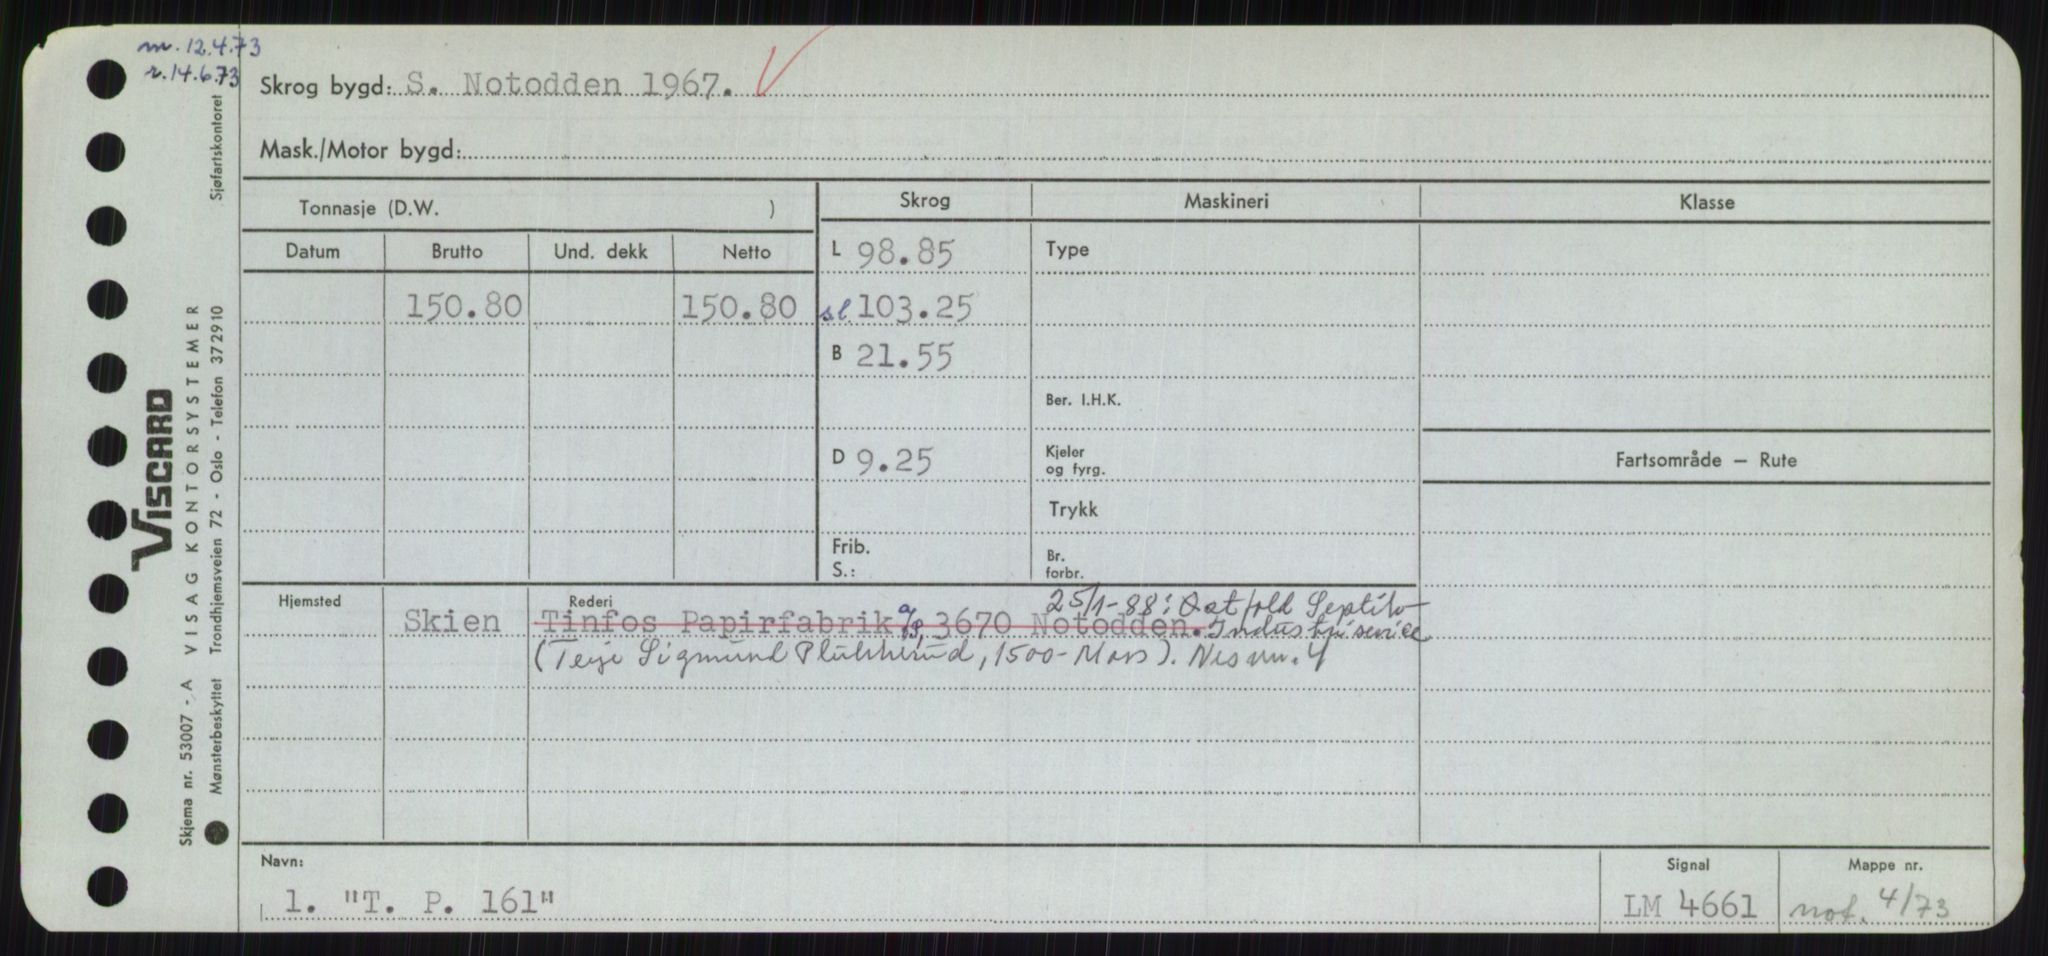 m. 12.4.73
r. 14.6.73
Skrog bygd: S. Notodden 1967.
Mask./Motor bygd:
Tonnasje (D.W. )
Skrog
Maskineri
Klasse
Datum
Brutto
Und. dekk
Netto
L 98.85
Type
150.80
150.80
sl. 103.25
B 21.55
Ber. I.H.K.
D 9.25
Kjeler
og fyrg.
Fartsområde – Rute
Trykk
Frib.
S.:
Br.
forbr.
Hjemsted
Skien
Rederi
25/1-88: Østfold Septik-
Tinfos Papirfabrik a/s, 3670 Notodden. Industriservice
(Terje Sigmund Plukkerud, 1500-Moss). Nes nr. 4
Navn:
1. "T. P. 161"
Signal
LM 4661
Mappe nr.
not. 4/73
Skjema nr. 53007 - A VISAG KONTORSYSTEMER
Mønsterbeskyttet Trondhjemsveien 72 - Oslo - Telefon 372910 Sjøfartskontoret
VISCARD